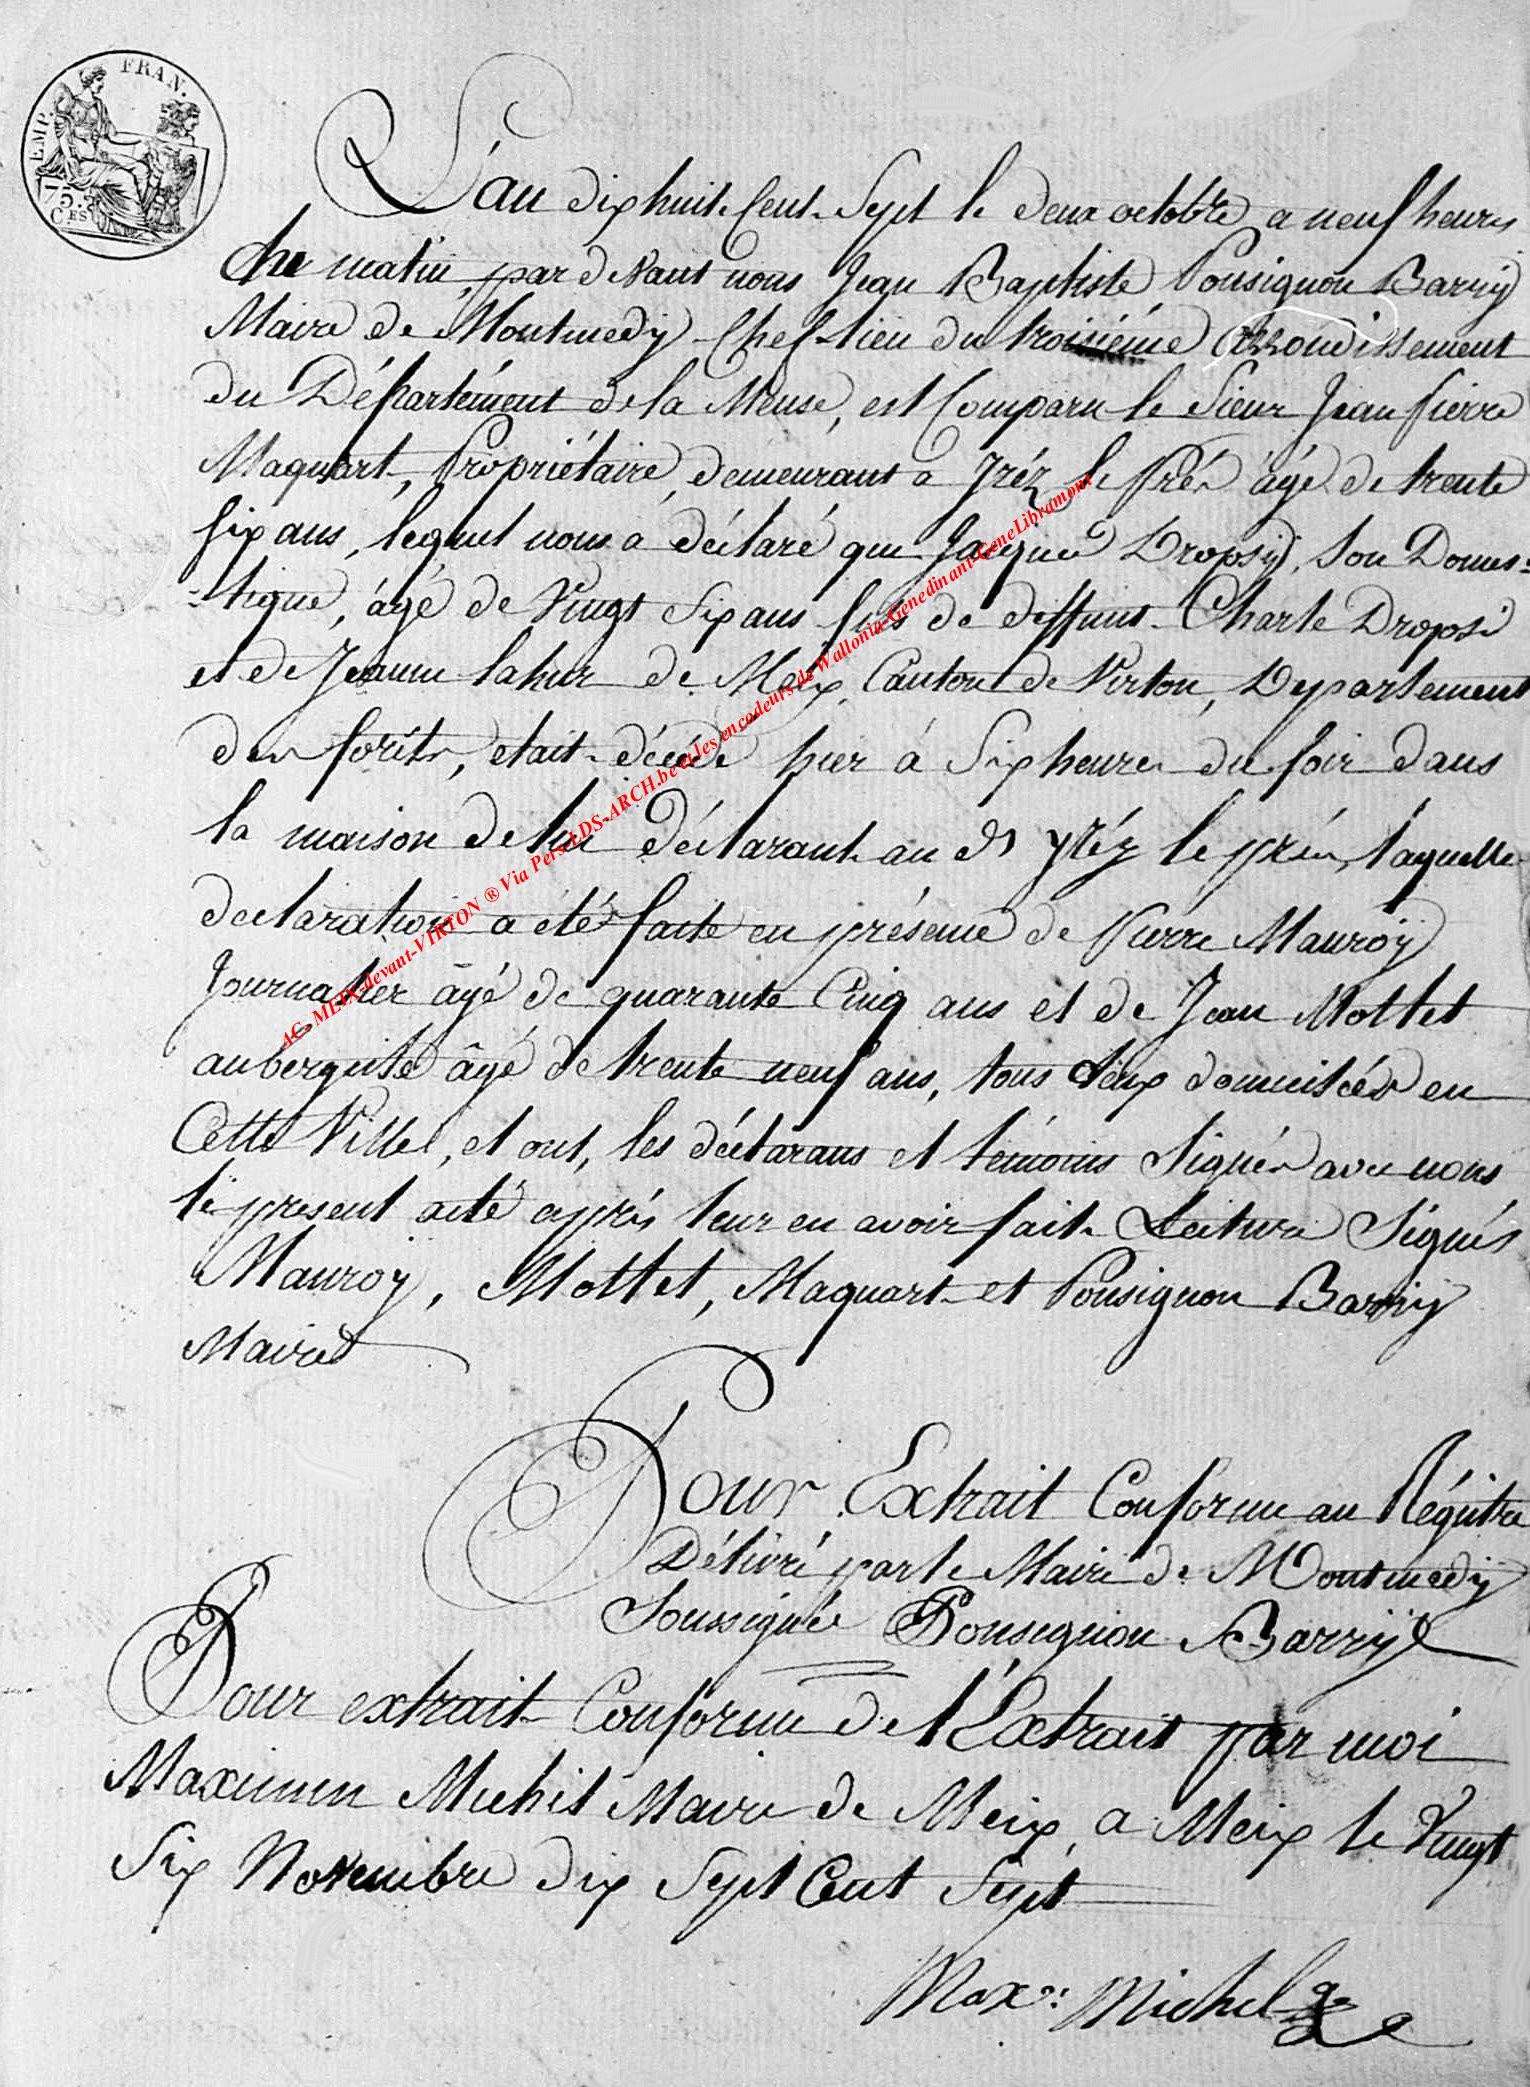 EMP. FRAN.
75 Ces
L'an dix huit Cent Sept le deux octobre a neuf heures
du matin, par devant nous Jean Baptiste Ponsignon Barry
Maire de Montmedy Chef-lieu du troisiéme arrondissement
du Département de la Meuse, est Comparu le Sieur Jean pierre
Maquart, Propriétaire, demeurant a Iréz le Prés âgé de trente
six ans, lequel nous a déclaré que Jacque Dropsy, Son Domes=
=tique, âgé de Vingt Six ans fils de deffunt Charle Dropsi
et de Jeanne lahur de Meix, Canton de Virton, Departement
des forêts, etait décédé hier à Six heures du soir dans
la maison de lui déclarant au dt yréz le prés, laquelle
declaration a été faite en présence de Pierre Mauroÿ
Journalier âgé de quarante Cinq ans et de Jean Mottet
aubergiste âgé de trente neuf ans, tous deux domiciliés en
Cette Ville, et ont, les déclarans et témoins Signés avec nous
le present acte après leur en avoir fait Lecture Signés
Mauroy, Mottet, Maquart et Ponsignon Barry
Maire
Pour Extrait Conforme au Régistre
Délivré par le Maire de Montmedy
Soussigné Ponsignon Barry
Pour extrait Conforme de l'Extrait par moi
Maximin Michel Maire de Meix, a Meix le Vingt
Six Novembre dix Sept Cent Sept
Max: Michel
AC. MEIX-devant-VIRTON ® Via Pers-LDS-ARCH.be et les encodeurs de Wallonia-Genedinant-GeneLibramont